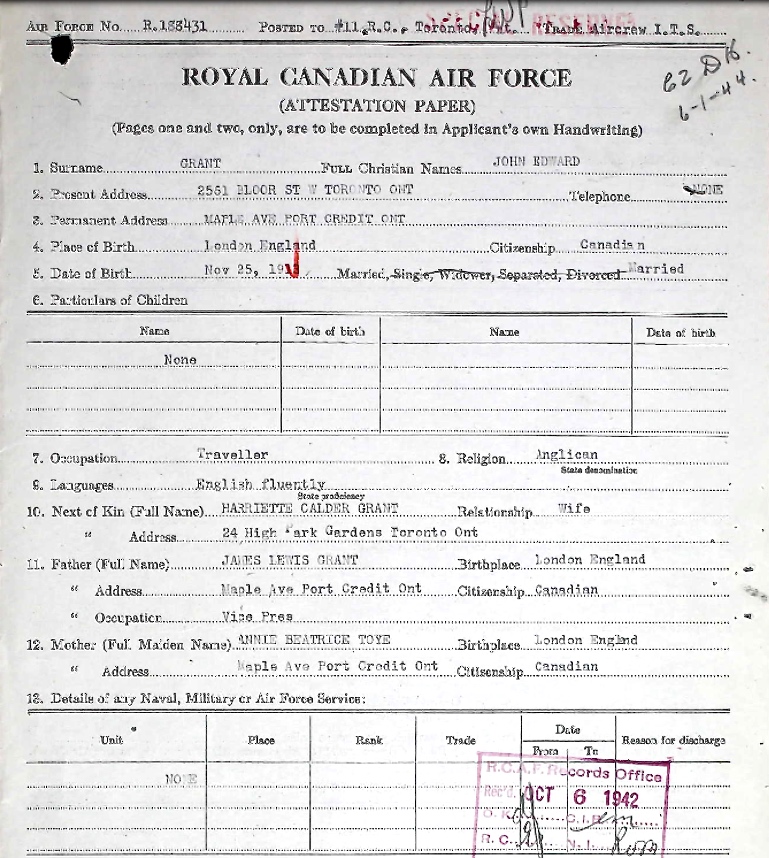 AIR FORCE No. R.188431 POSTED TO #11,R.C., Toronto, Ont. TRADE Aircrew I.T.S.
ROYAL CANADIAN AIR FORCE
(ATTESTATION PAPER)
6-1-44.
(Pages one and two, only, are to be completed in Applicant's own Handwriting)
1. Surname GRANT FULL Christian Names JOHN EDWARD
2. Present Address 2551 BLOOR ST W TORONTO ONT Telephone NONE
3. Permanent Address MAPLE AVE PORT CREDIT ONT
4. Place of Birth London England Citizenship Canadian
5. Date of Birth Nov 25, Married, Single, Widower, Separated, Divorced Married
6. Particulars of Children
Name Date of birth Name Date of birth
None
7. Occupation Traveller 8. Religion Anglican
State denomination
9. Languages English fluently
State proficiency
10. Next of Kin (Full Name) HARRIETTE CALDER GRANT Relationship Wife
" Address 24 High Park Gardens Toronto Ont
11. Father (Full Name) JAMES LEWIS GRANT Birthplace London England
" Address Maple Ave Port Credit Ont Citizenship Canadian
" Occupation Vice Pres
12. Mother (Full Maiden Name) ANNIE BEATRICE TOYE Birthplace London Englnd
" Address Maple Ave Port Credit Ont Citizenship Canadian
13. Details of any Naval, Military or Air Force Service:
Unit Place Rank Trade Date Reason for discharge
From To
NONE
R.C.A.F. Records Office
Rec'd. OCT 6 1942
O.K. C.I.B.
R.C. N.I.